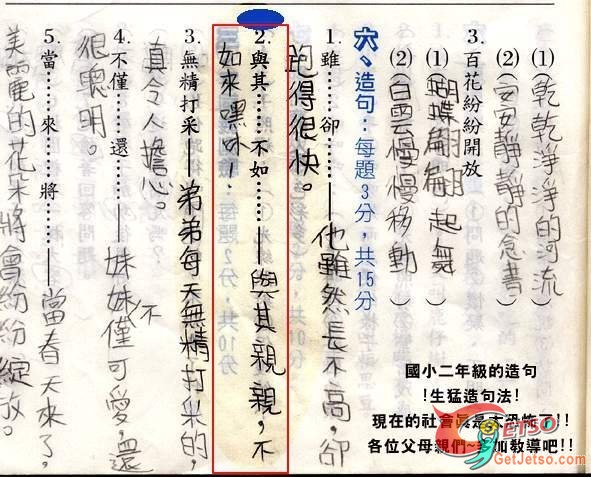 (1)(乾乾淨淨的河流)
(2)(安安靜靜的念書)
3.百花紛紛開放
(1)(蝴蝶翩翩起舞)
(2)(白雲慢慢移動)
六、造句：每題3分，共15分
1.雖……卻……——他雖然長不高，卻
跑得很快。
2.與其……不如……——與其親親，不
如來嘿咻！
3.無精打采——弟弟每天無精打采的，
真令人擔心。
4.不僅……還……——妹妹不僅可愛，還
很聰明。
5.當……來……將……——當春天來了，
美麗的花朵將會紛紛綻放。
國小二年級的造句
!生猛造句法!
現在的社會真是太恐怖了!!
各位父母親們~多加教導吧!!
JETSO
GetJetso.com